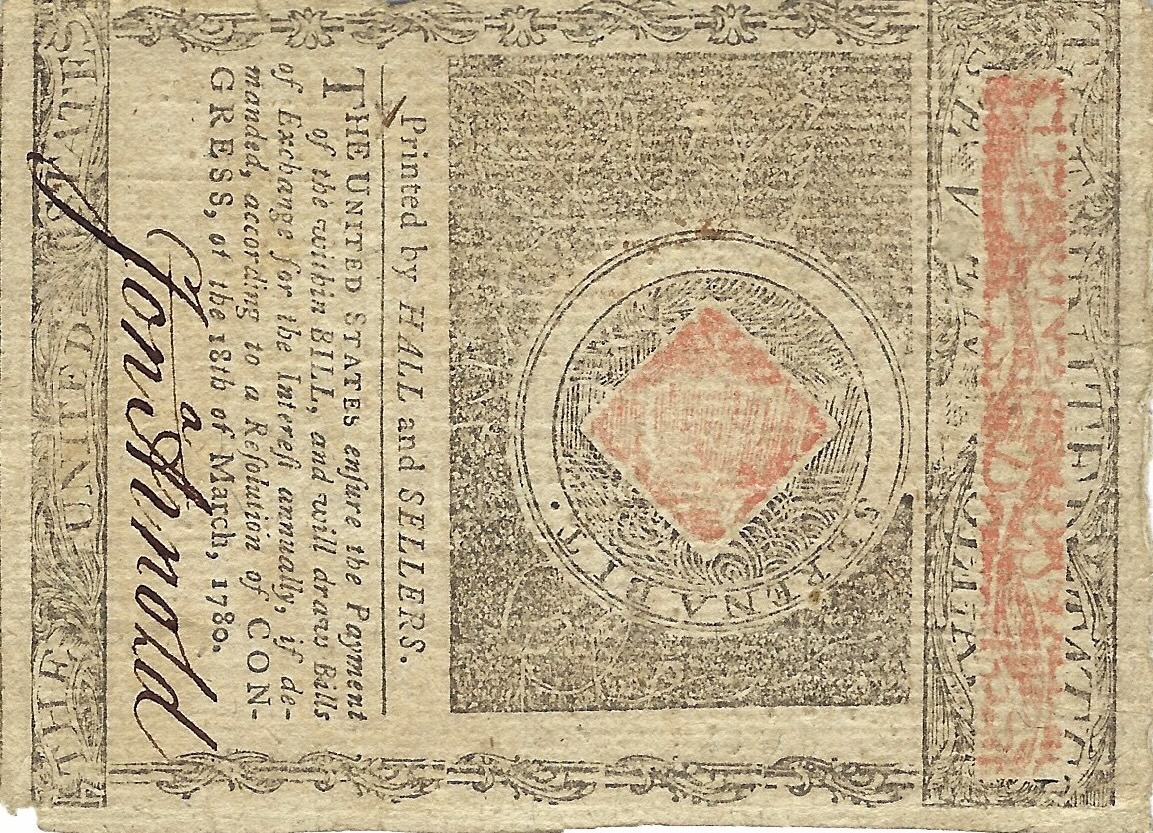 SERENABIT.
Printed by HALL and SELLERS.
THE UNITED STATES enſure the Payment
of the within BILL, and will draw Bills
of Exchange for the Intereſt annually, if de-
manded, according to a Reſolution of CON-
GRESS, of the 18th of March, 1780.
Jonᵃ Arnold
THE UNITED STATES